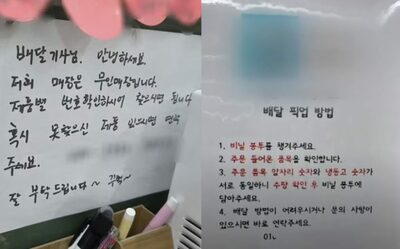 배달기사님. 안녕하세요.
저희 매장은 무인매장입니다.
제품별 번호확인하시어 찾으시면 됩니다
혹시 못찾으신 제품 있으시면 연락
주세요.
잘 부탁드립니다~ 꾸벅~
배달 픽업 방법
1. 비닐 봉투를 챙겨주세요.
2. 주문 들어온 품목을 확인합니다.
3. 주문 품목 앞자리 숫자와 냉동고 숫자가
서로 동일하니 수량 확인 후 비닐 봉투에
담아주세요.
4. 배달 방법이 어려우시거나 문의 사항이
있으시면 바로 연락주세요.